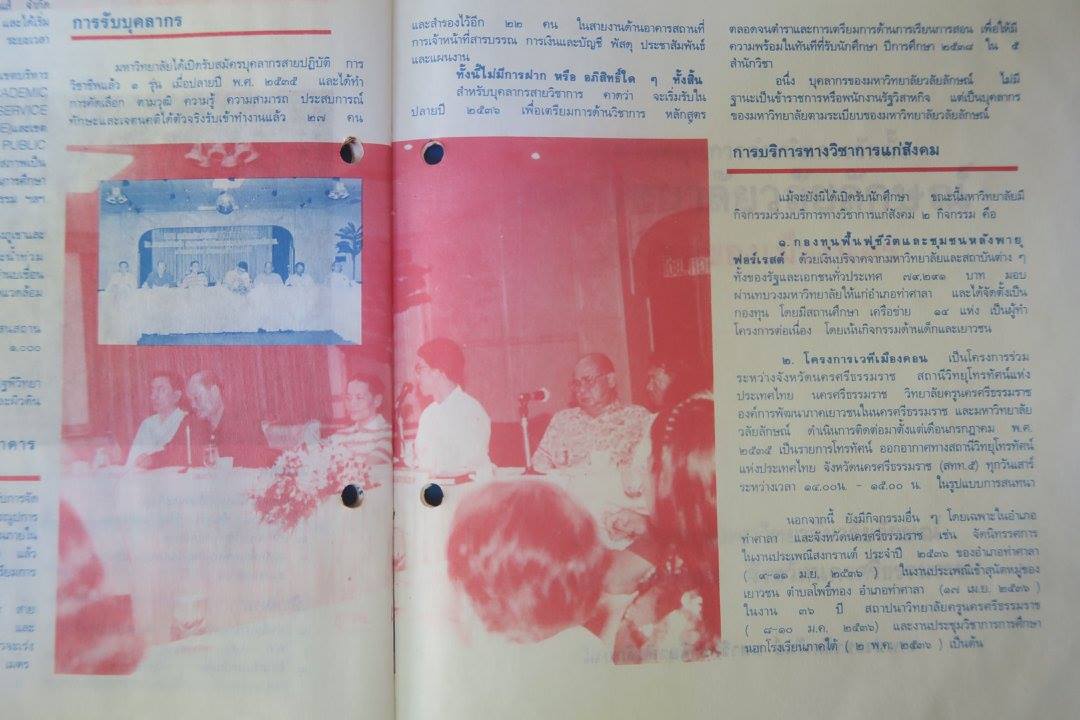 การรับบุคลากร
มหาวิทยาลัยได้เปิดรับสมัครบุคลากรสายปฏิบัติ การ
วิชาชีพแล้ว ๑ รุ่น เมื่อปลายปี พ.ศ. ๒๕๓๕ และได้ทำ
การคัดเลือก ตามวุฒิ ความรู้ ความสามารถ ประสบการณ์
ทักษะและเจตนคติได้ตัวจริงรับเข้าทำงานแล้ว ๒๗ คน
และสำรองไว้อีก ๒๒ คน ในสายงานด้านอาคารสถานที่
การเจ้าหน้าที่สารบรรณ การเงินและบัญชี พัสดุ ประชาสัมพันธ์
และแผนงาน
ทั้งนี้ไม่มีการฝาก หรือ อภิสิทธิ์ใด ๆ ทั้งสิ้น
สำหรับบุคลากรสายวิชาการ คาดว่า จะเริ่มรับใน
ปลายปี ๒๕๓๖ เพื่อเตรียมการด้านวิชาการ หลักสูตร
ตลอดจนตำราและการเตรียมการด้านการเรียนการสอน เพื่อให้มี
ความพร้อมในทันทีที่รับนักศึกษา ปีการศึกษา ๒๕๓๘ ใน ๕
สำนักวิชา
อนึ่ง บุคลากรของมหาวิทยาลัยวลัยลักษณ์ ไม่มี
ฐานะเป็นข้าราชการหรือพนักงานรัฐวิสาหกิจ แต่เป็นบุคลากร
ของมหาวิทยาลัยตามระเบียบของมหาวิทยาลัยวลัยลักษณ์
การบริการทางวิชาการแก่สังคม
แม้จะยังมิได้เปิดรับนักศึกษา ขณะนี้มหาวิทยาลัยมี
กิจกรรมร่วมบริการทางวิชาการแก่สังคม ๒ กิจกรรม คือ
๑. กองทุนฟื้นฟูชีวิตและชุมชนหลังพายุ
ฟอร์เรสต์ ด้วยเงินบริจาคจากมหาวิทยาลัยและสถาบันต่าง ๆ
ทั้งของรัฐและเอกชนทั่วประเทศ ๗๙,๒๙๑ บาท มอบ
ผ่านทบวงมหาวิทยาลัยให้แก่อำเภอท่าศาลา และได้จัดตั้งเป็น
กองทุน โดยมีสถานศึกษา เครือข่าย ๑๔ แห่ง เป็นผู้ทำ
โครงการต่อเนื่อง โดยเน้นกิจกรรมด้านเด็กและเยาวชน
๒. โครงการเวทีเมืองคอน เป็นโครงการร่วม
ระหว่างจังหวัดนครศรีธรรมราช สถานีวิทยุโทรทัศน์แห่ง
ประเทศไทย นครศรีธรรมราช วิทยาลัยครูนครศรีธรรมราช
องค์การพัฒนาภาคเยาวชนในนครศรีธรรมราช และมหาวิทยาลัย
วลัยลักษณ์ ดำเนินการติดต่อมาตั้งแต่เดือนกรกฎาคม พ.ศ.
๒๕๓๕ เป็นรายการโทรทัศน์ ออกอากาศทางสถานีวิทยุโทรทัศน์
แห่งประเทศไทย จังหวัดนครศรีธรรมราช (สทท.๕) ทุกวันเสาร์
ระหว่างเวลา ๑๔.๐๐น. - ๑๕.๐๐ น. ในรูปแบบการสนทนา
นอกจากนี้ ยังมีกิจกรรมอื่น ๆ โดยเฉพาะในอำเภอ
ท่าศาลา และจังหวัดนครศรีธรรมราช เช่น จัดนิทรรศการ
ในงานประเพณีสงกรานต์ ประจำปี ๒๕๓๖ ของอำเภอท่าศาลา
( ๙-๑๑ ม.ย. ๒๕๓๖ ) ในงานประเพณีเข้าสุนัตหมู่ของ
เยาวชน ตำบลโพธิ์ทอง อำเภอท่าศาลา (๑๗ เม.ย. ๒๕๓๖ )
ในงาน ๓๖ ปี สถาปนาวิทยาลัยครูนครศรีธรรมราช
( ๘-๑๐ ม.ค. ๒๕๓๖) และงานประชุมวิชาการการศึกษา
นอกโรงเรียนภาคใต้ ( ๒ พ.ค. ๒๕๓๖ ) เป็นต้น